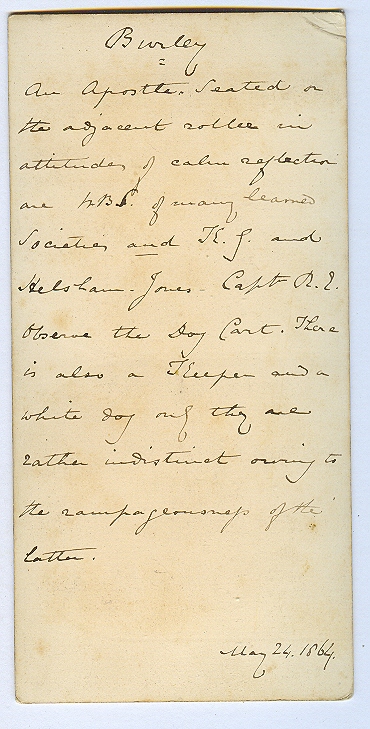 Burley
An Apostle. Seated on
the adjacent rollee in
attitudes of calm reflection
are W.B.S. of many learned
Societies and K. G. and
Helsham-Jones. Capt R.E.
Observe the Dog Cart. There
is also a Keeper and a
white dog only they are
rather indistinct owing to
the rampageousness of the
latter.
May 24. 1864.